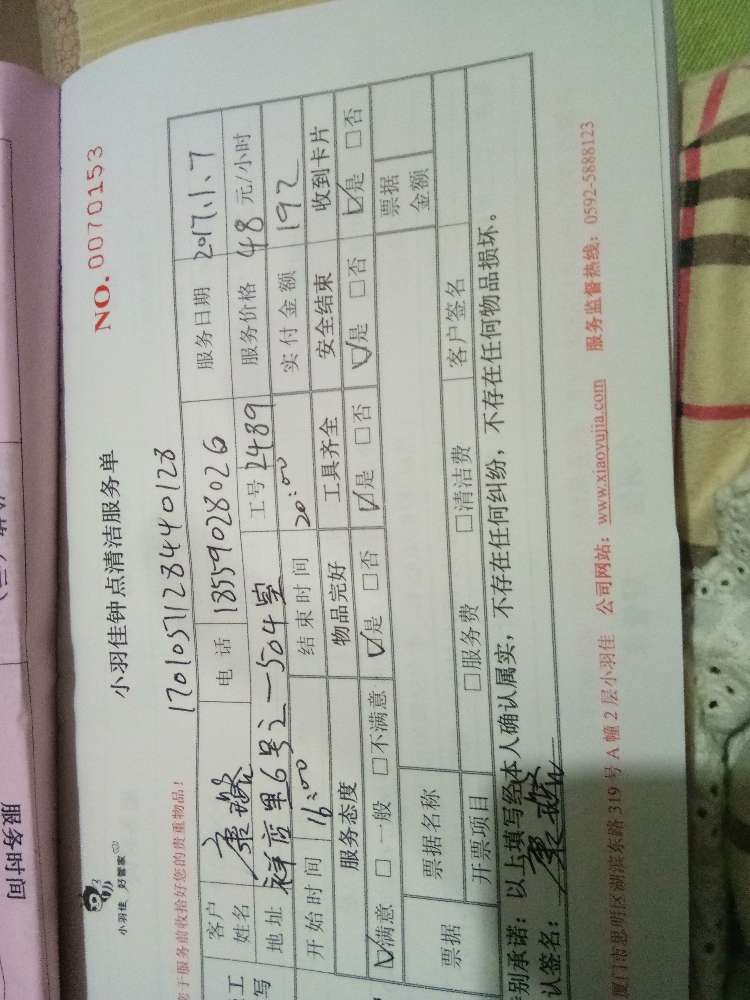 小羽佳 好管家
小羽佳钟点清洁服务单
NO.0070153
于服务前收拾好您的贵重物品！
1701057128440128
客户姓名 电话 18559028026 服务日期 2017.1.7
地址 祥店里6号之一504室 工号 2489 服务价格 48 元/小时
开始时间 16:00 结束时间 20:00 实付金额 192
服务态度 物品完好 工具齐全 安全结束 收到卡片
☑满意 □一般 □不满意 ☑是 □否 ☑是 □否 ☑是 □否 ☑是 □否
票据 票据名称 票据金额
开票项目 □服务费 □清洁费 客户签名
别承诺：以上填写经本人确认属实，不存在任何纠纷，不存在任何物品损坏。
认签名：
厦门市思明区湖滨东路319号A幢2层小羽佳 公司网站：www.xiaoyujia.com 服务监督热线：0592-5888123
工
写
服务时间